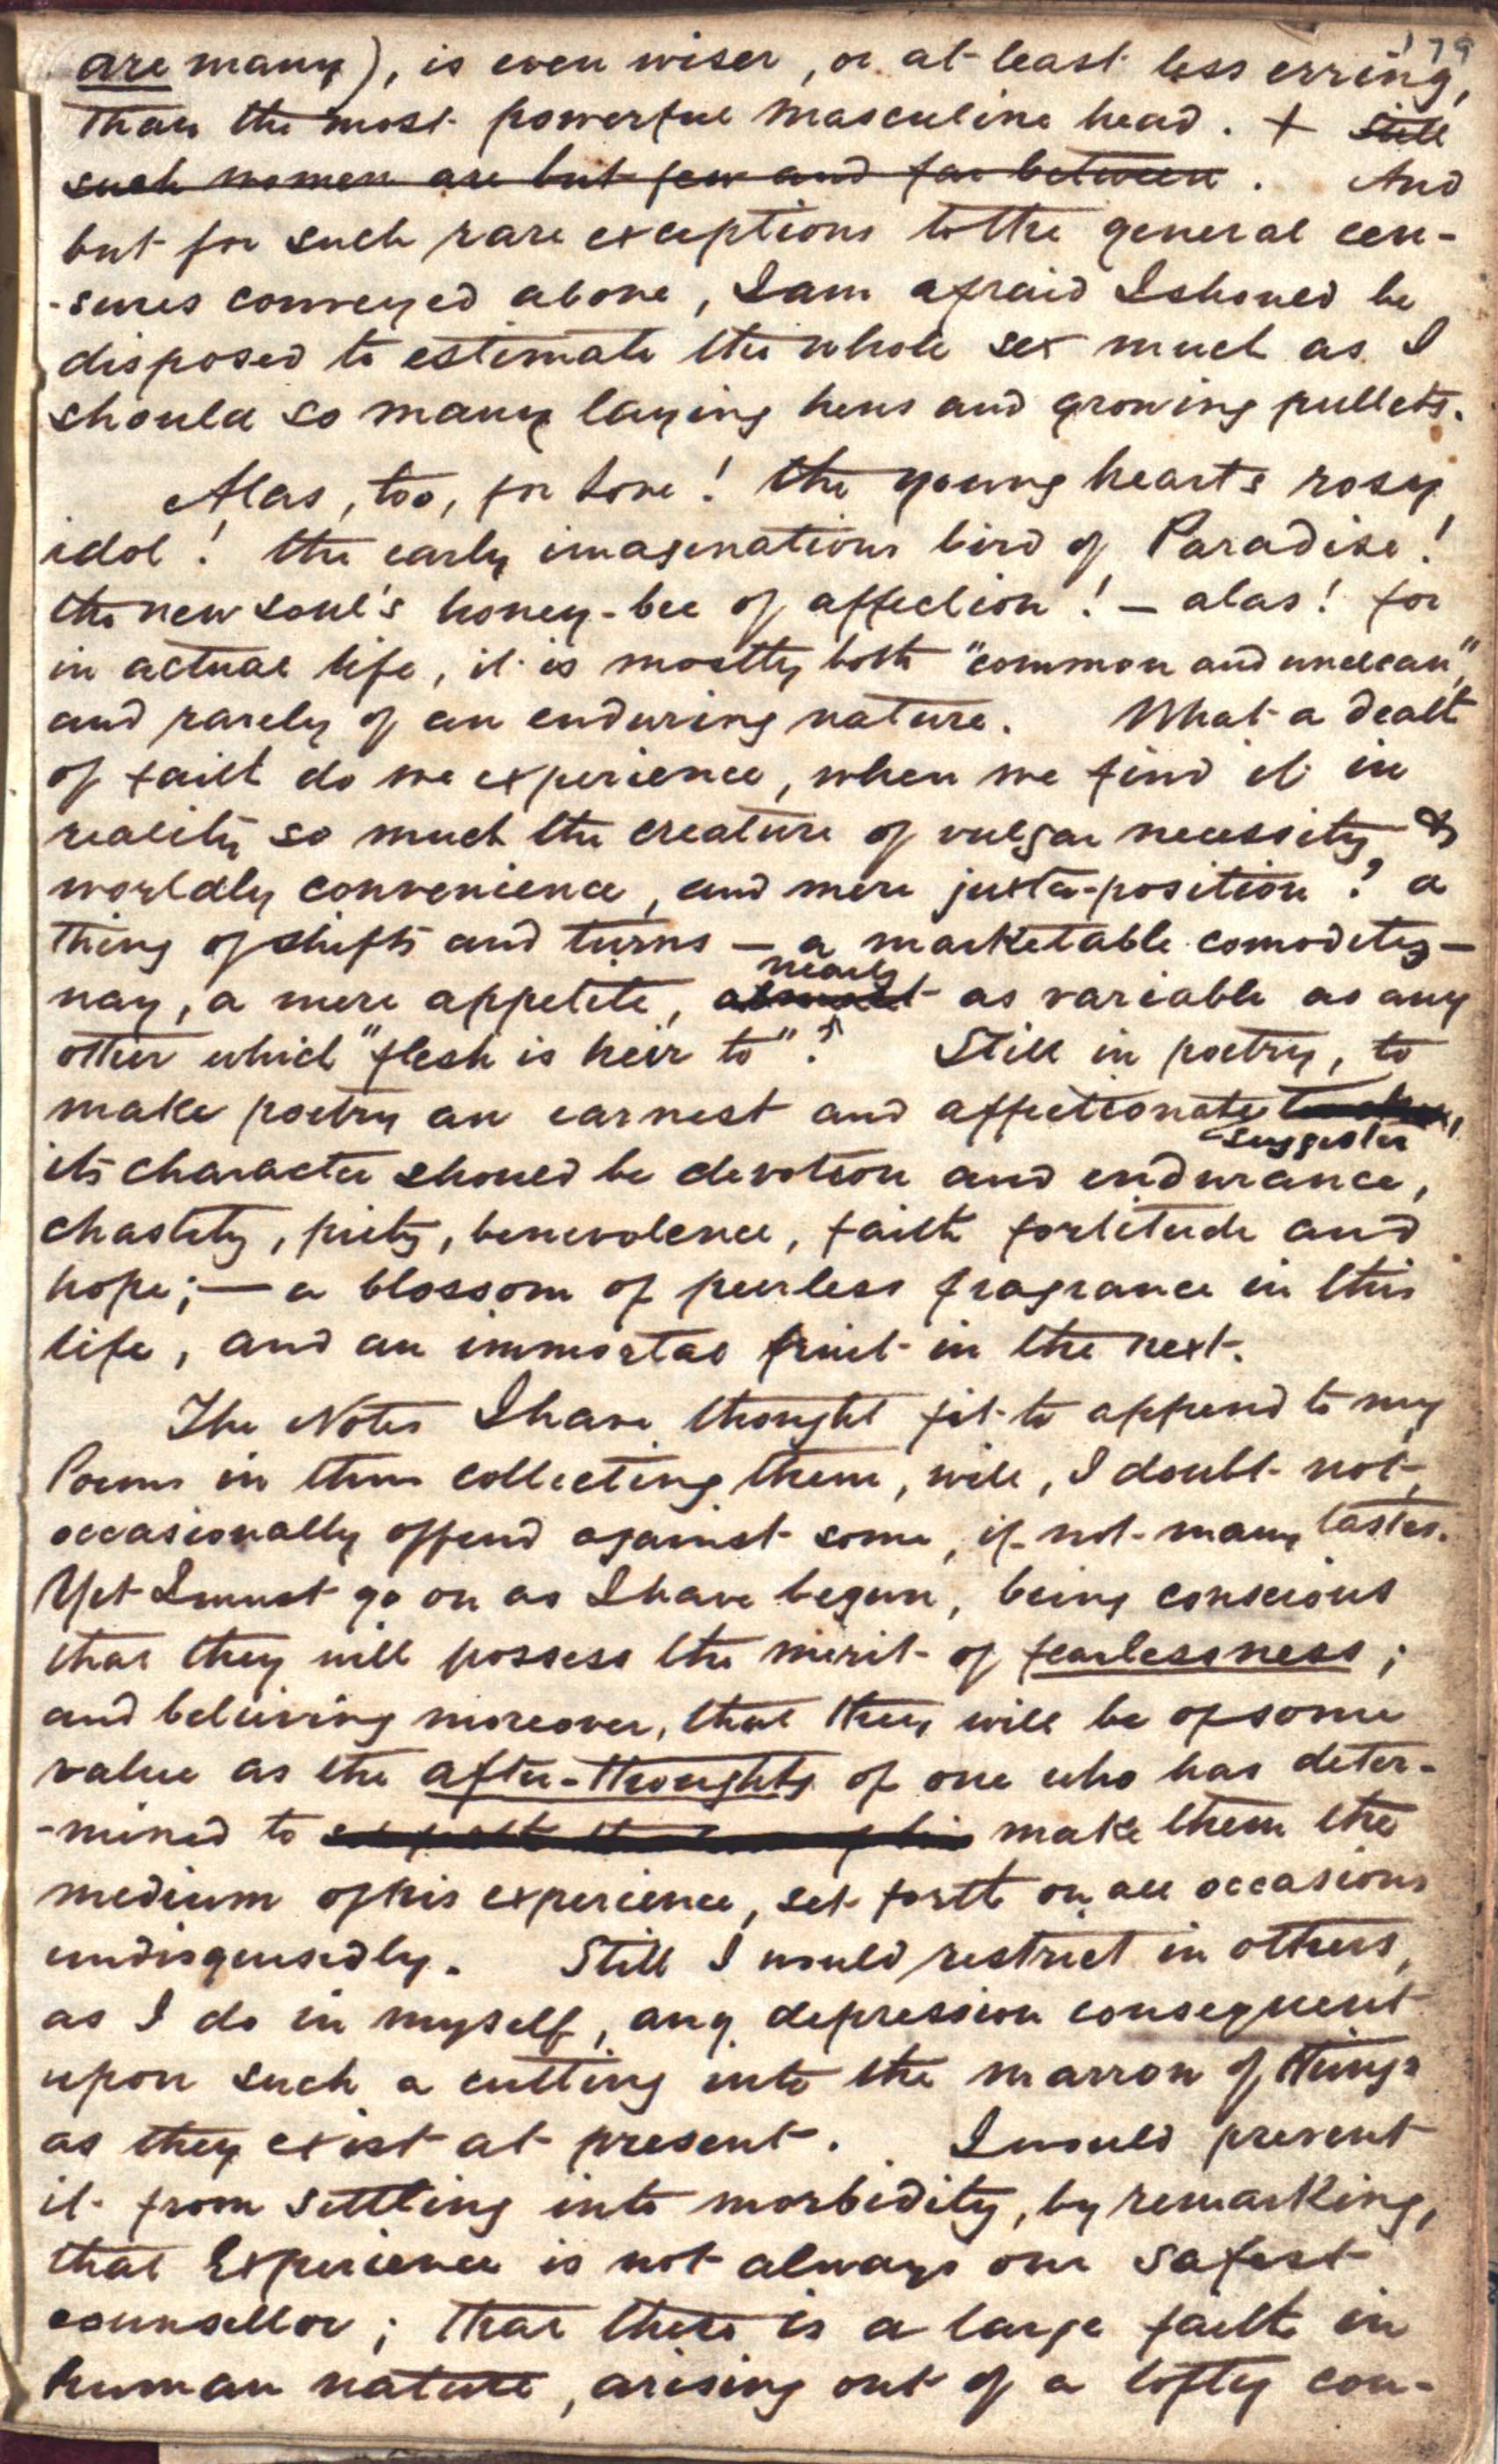 179
are many), is even wiser, or at least less erring,
than the most powerful masculine head. + still
such women are but few and far between. And
but for such rare exceptions to the general cen-
-sures conveyed above, I am afraid I should be
disposed to estimate the whole sex much as I
should so many laying hens and growing pullets.
Alas, too, for Love! the young heart's rosy
idol! the early imaginations bird of Paradise!
the new soul's honey-bee of affection! — alas! for
in actual life, it is mostly both "common and unclean",
and rarely of an enduring nature. What a death
of faith do we experience, when we find it in
reality so much the creature of vulgar necessity &
worldly convenience, and mere juxta-position? a
thing of shifts and turns — a marketable comodity —
nearly
nay, a mere appetite, almost as variable as any
other which "flesh is heir to"? Still in poetry, to
make poetry an earnest and affectionate
suggester
its character should be devotion and endurance,
chastity, piety, benevolence, faith fortitude and
hope; — a blossom of peerless fragrance in this
life, and an immortal fruit in the next.
The Notes I have thought fit to append to my
Poems in thus collecting them, will, I doubt not,
occasionally offend against some, if not many tastes.
Yet I must go on as I have begun, being conscious
that they will possess the merit of fearlessness;
and believing moreover, that they will be of some
value as the after-thoughts of one who has deter-
-mined to make them the
medium of his experience, set forth on all occasions
undisguisedly. Still I would restrict in others,
as I do in myself, any depression consequent
upon such a cutting into the marrow of things
as they exist at present. I would prevent
it from settling into morbidity, by remarking,
that Experience is not always our safest
counsellor; that there is a large faith in
human nature, arising out of a lofty con-